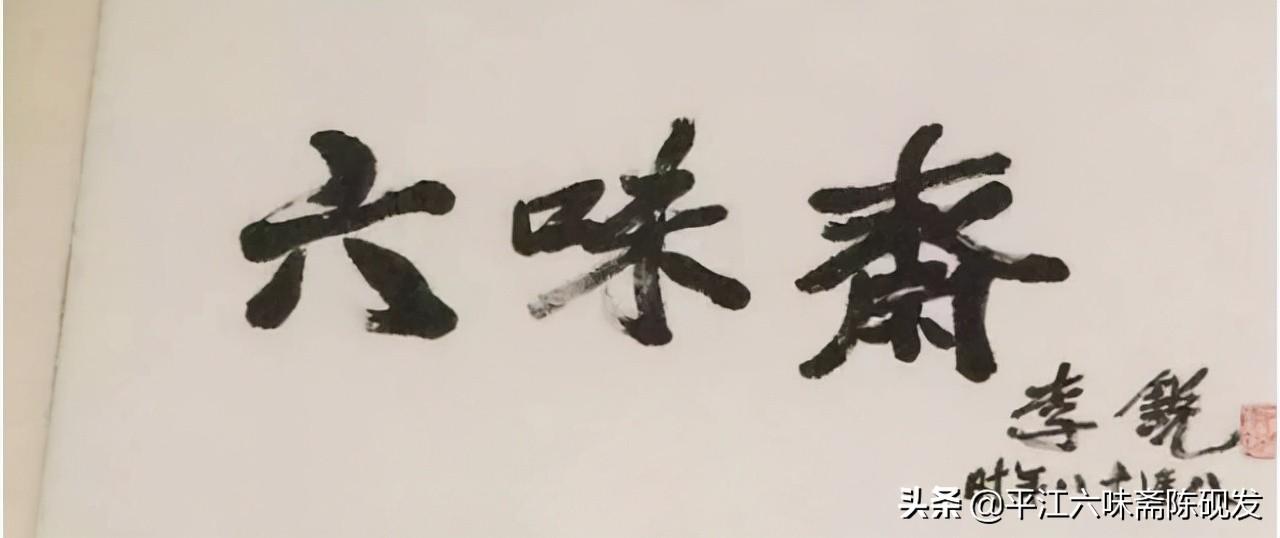 六味斋
李锐
时年八十八
头条 @平江六味斋陈砚发